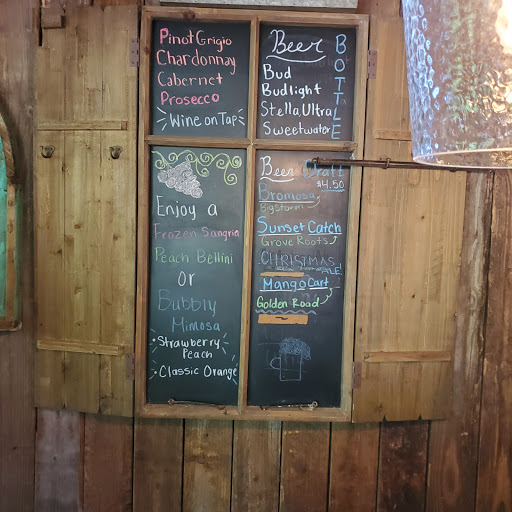 Pinot Grigio
Chardonnay
Cabernet
Prosecco
Wine on Tap
Beer
BOTTLE
Bud
Budlight
Stella Ultra
Sweetwater
Enjoy a
Frozen Sangria
Peach Bellini
Or
Bubbly
Mimosa
• Strawberry
Peach
• Classic Orange
Beer Draft
$4.50
Bromosa
Big Storm
Sunset Catch
Grove Roots
CHRISTMAS
ALE!
Mango Cart
Golden Road